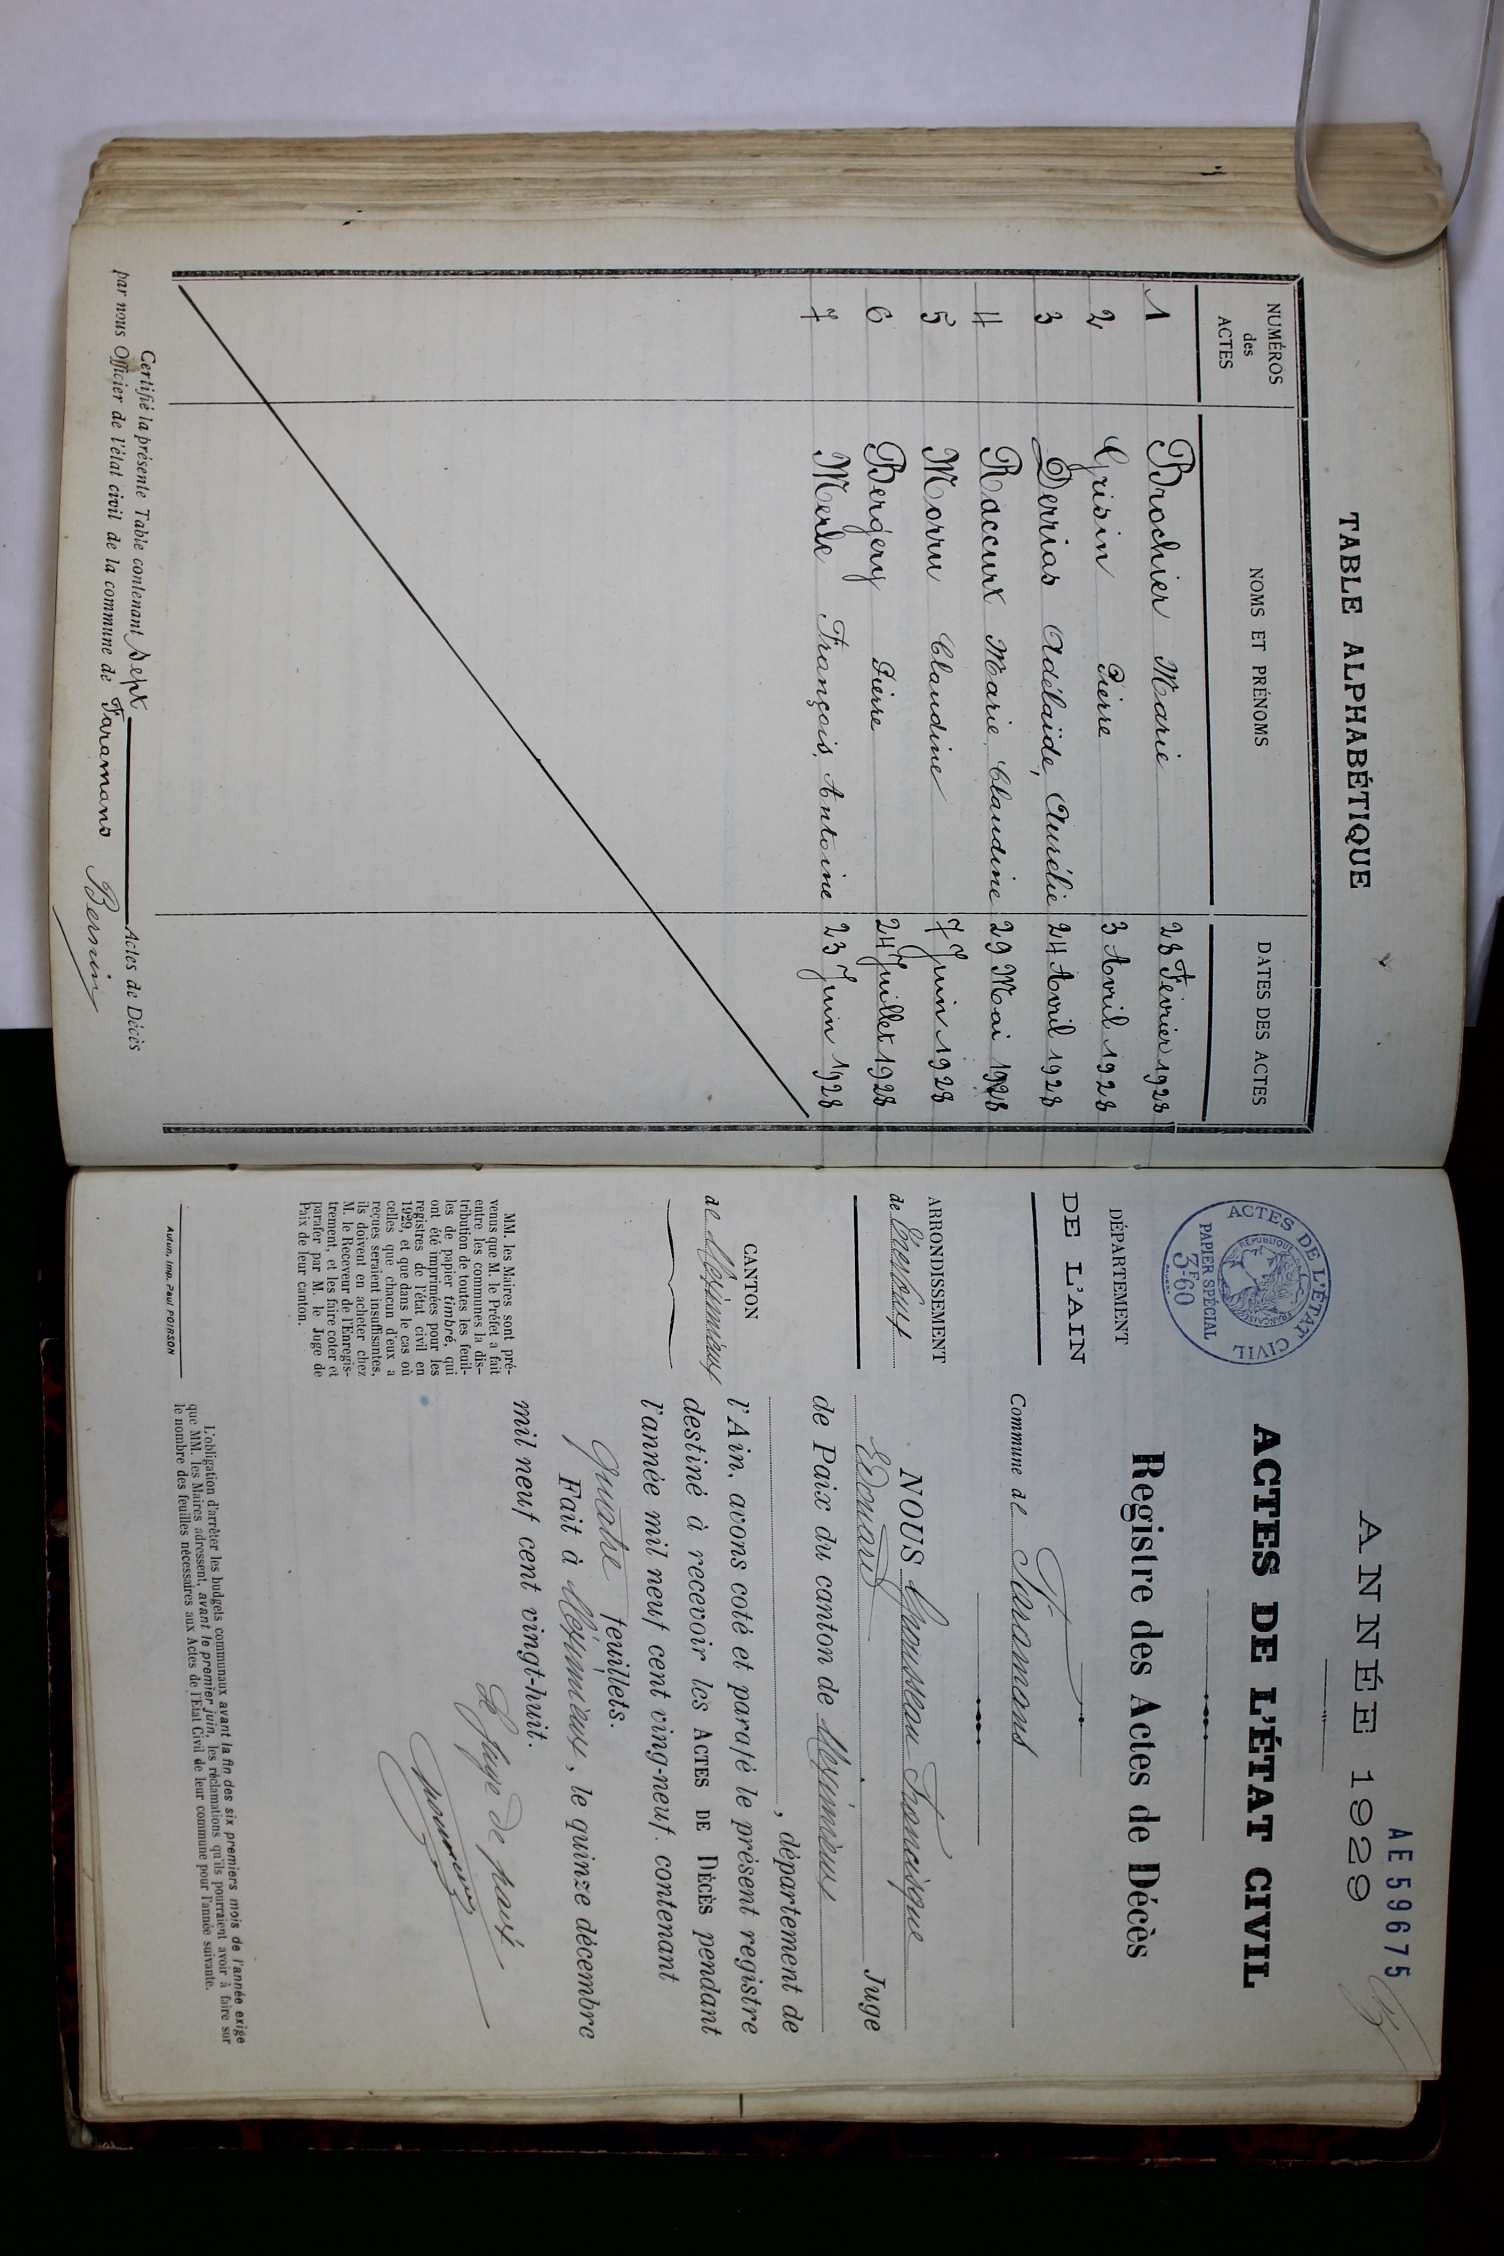 TABLE ALPHABÉTIQUE
NUMÉROS des ACTES
NOMS ET PRÉNOMS
DATES DES ACTES
1 Brochier Marie 28 Février 1928
2 Grisin Pierre 3 Avril 1928
3 Derrias Adélaïde, Aurélie 24 Avril 1928
4 Raccurt Marie, Claudine 29 Mai 1928
5 Morru Claudine 7 Juin 1928
6 Bergery Pierre 24 Juillet 1928
7 Merle François, Antoine 23 Juin 1928
Certifié la présente Table contenant Sept Actes de Décès
par nous Officier de l'état civil de la commune de Faramans
AE 59675
ANNÉE 1929
ACTES DE L'ÉTAT CIVIL
Registre des Actes de Décès
ACTES DE L'ÉTAT CIVIL
RÉPUBLIQUE FRANÇAISE
PAPIER SPÉCIAL
3F60
DÉPARTEMENT
DE L'AIN
ARRONDISSEMENT
de Trévoux
CANTON
de Meximieux
MM. les Maires sont pré-
venus que M. le Préfet a fait
entre les communes la dis-
tribution de toutes les feuil-
les de papier timbré, qui
ont été imprimées pour les
registres de l'état civil en
1929, et que dans le cas où
celles que chacun d'eux a
reçues seraient insuffisantes,
ils doivent en acheter chez
M. le Receveur de l'Enregis-
trement, et les faire coter et
parafer par M. le Juge de
Paix de leur canton.
Autun, Imp. Paul POIRSON
Commune de Faramans
NOUS Grousseau François
Edouard Juge
de Paix du canton de Meximieux
, département de
l'Ain, avons coté et parafé le présent registre
destiné à recevoir les ACTES DE DÉCÈS pendant
l'année mil neuf cent ving-neuf, contenant
quatre feuillets.
Fait à Meximieux, le quinze décembre
mil neuf cent vingt-huit.
Le Juge de paix
L'obligation d'arrêter les budgets communaux avant la fin des six premiers mois de l'année exige
que MM. les Maires adressent, avant le premier juin, les réclamations qu'ils pourraient avoir à faire sur
le nombre des feuilles nécessaires aux Actes de l'Etat Civil de leur commune pour l'année suivante.